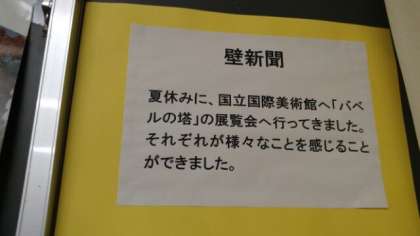 壁新聞
夏休みに、国立国際美術館へ「バベ
ルの塔」の展覧会へ行ってきました。
それぞれが様々なことを感じること
ができました。